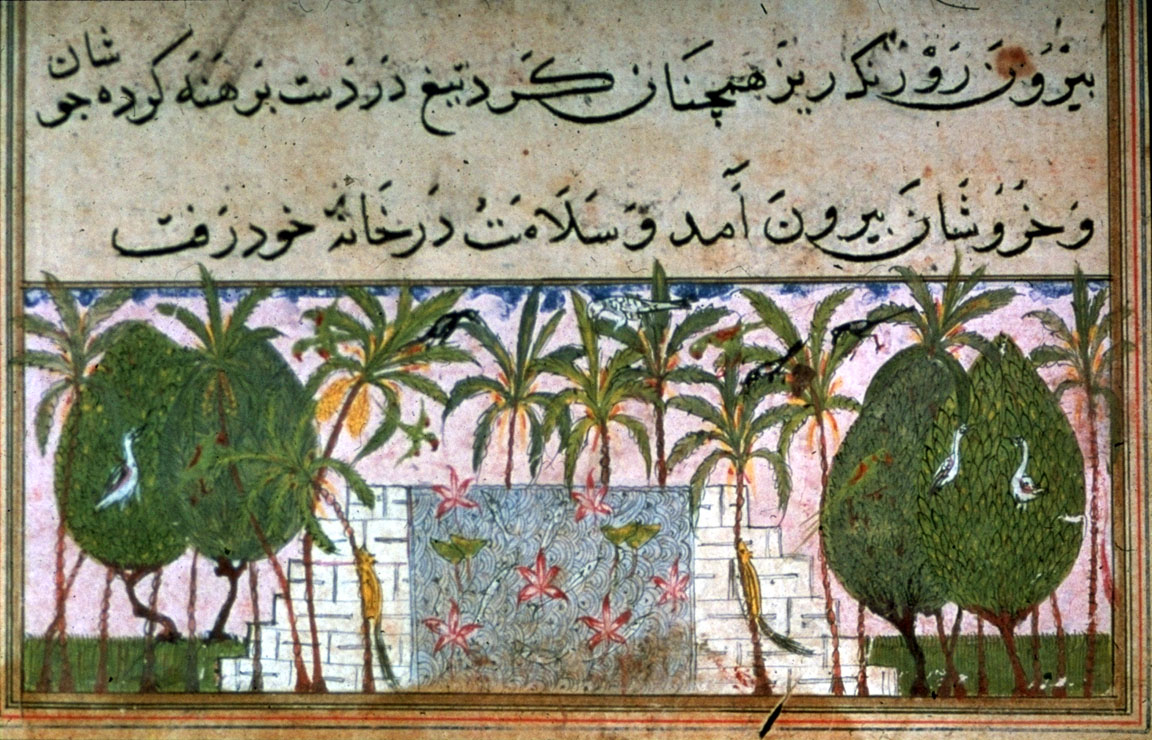 بیرون رو رنکریز همچنان کرد تیغ در دست برهنه کرده جوشان
و خروشان بیرون آمد و سلامت در خانهٔ خود رفت